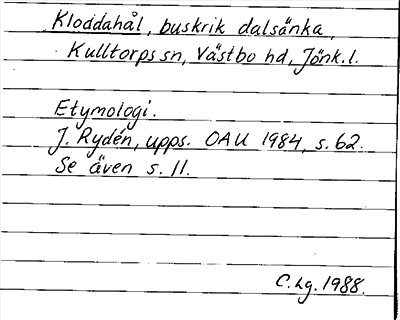 Kloddahål, buskrik dalsänka,
Kulltorps sn, Västbo hd, Jönk.l.
Etymologi.
J. Rydén, upps. OAU 1984, s. 62.
Se även s. 11.
C.Lg. 1988.